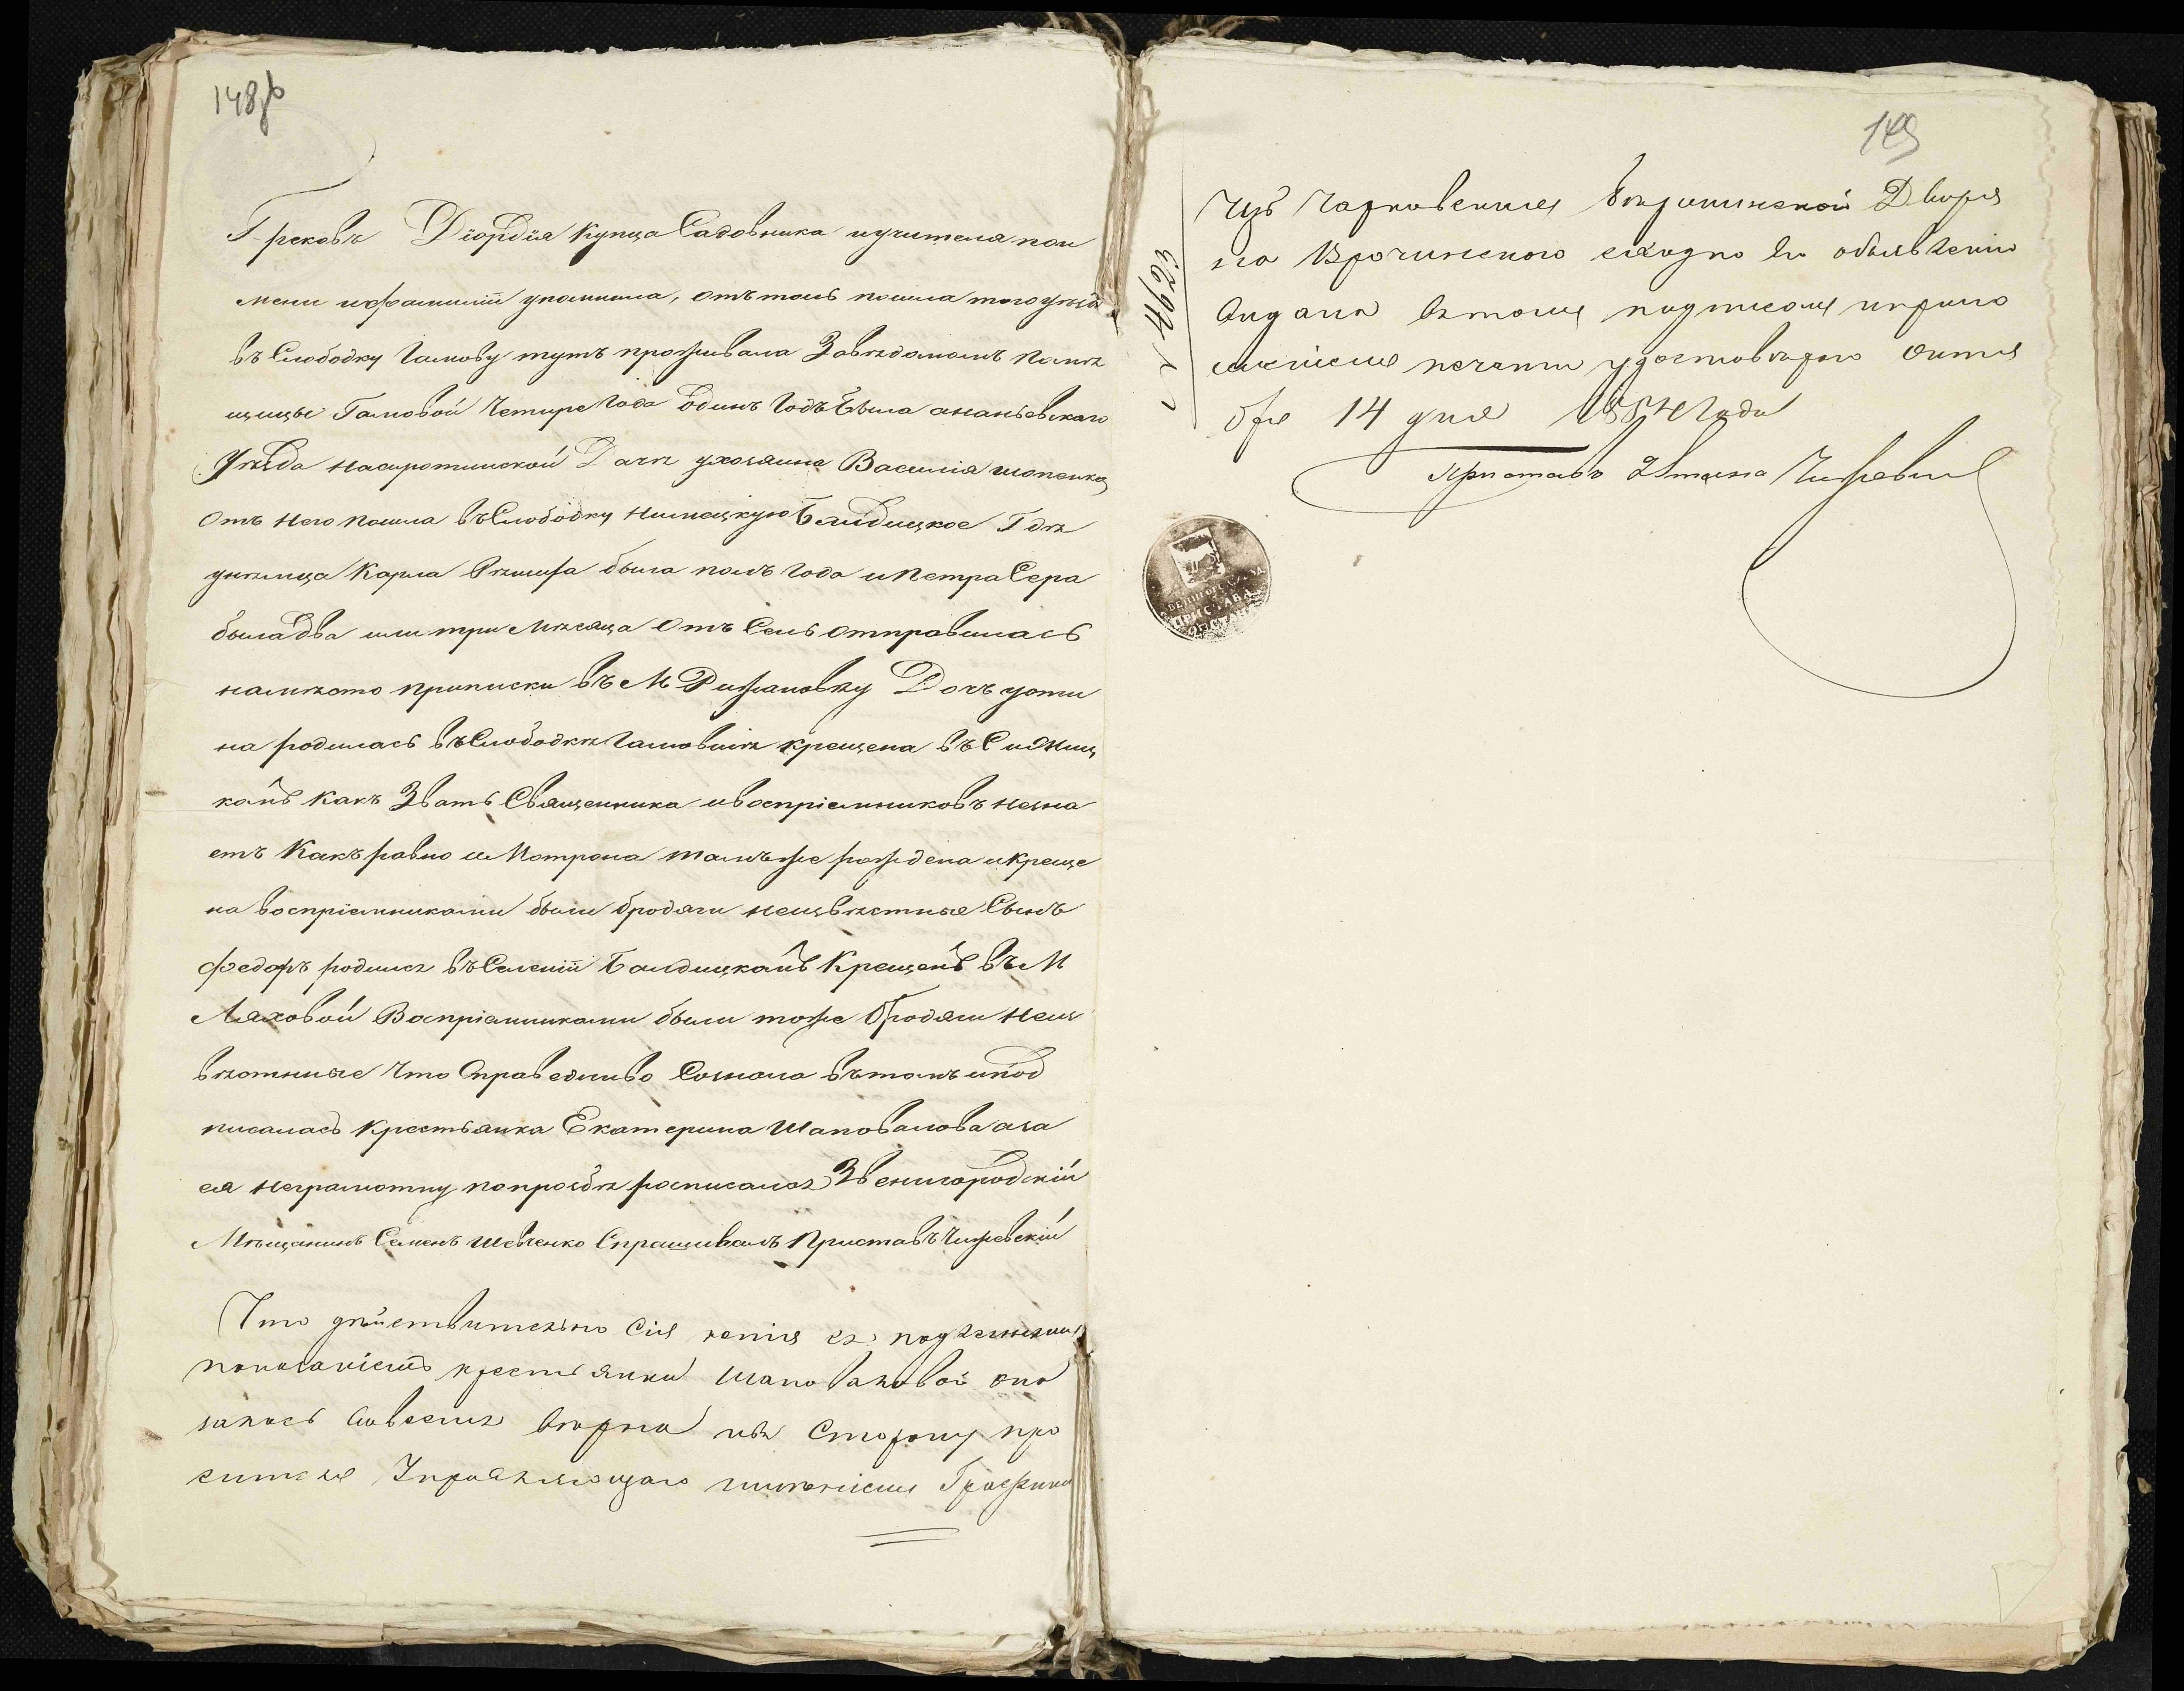 148 об
Грековъ Діордія Купца Садовника и учителя по и
мени и фамиліи упомнила, отъ толь пошла того уѣзда
въ Слободку Гамову тутъ проживала Завѣдомомъ Помѣ
щицы Гамовой Четире Года Одинъ Годъ была ананьевскаго
Уѣзда на сиротинской Дачѣ у хозяина Василія шопенка
Отъ него пошла въ Слободку Нимецкую Балдицкое Гдѣ
у нѣмца Карла была полъ года и Петра Сера
была два или три мѣсяца Отъ Сель отправилась
на мѣсто приписки въ М Рижановку Дочъ усти
на родилась въ Слободкѣ Гамовкѣ крещена въ С
комъ Какъ Звать Священника и воспріемниковъ незна
етъ Какъ равно и Мотрона тамъ же рождена и креще
на воспріемниками были бродяги неизвѣстные Сынъ
Федоръ родился въ Селеніи Балдицкомъ Крещенъ въ М
Ляховой Воспріемниками были тоже бродяги неиз
вѣстные Что Справедливо Сознала въ томъ и под
писалась Крестьянка Екатерина Шаповалова а за
ея неграмотну по просьбѣ росписался Звенигородскій
Мѣщанинъ Семенъ Шевченко Спрашивалъ Приставъ Чижевскій
Что дѣйствительно Сія копія съ подленнымъ
показаніемъ крестьянки Шаповаловой ока
залась Совсемъ вѣрна и въ Сторону про
сителя Управляющаго имѣніемъ Графини
149
№ 4623
Чарковскимъ Дворя
на Врочинскаго сходно Его объявленію
видана въ томъ подписомъ и прило
женіемъ печати удостовѣряю Октя
бря 14 дня 1854 Года
Приставъ 2 Стана Чижевскій
ПРИСТАВА